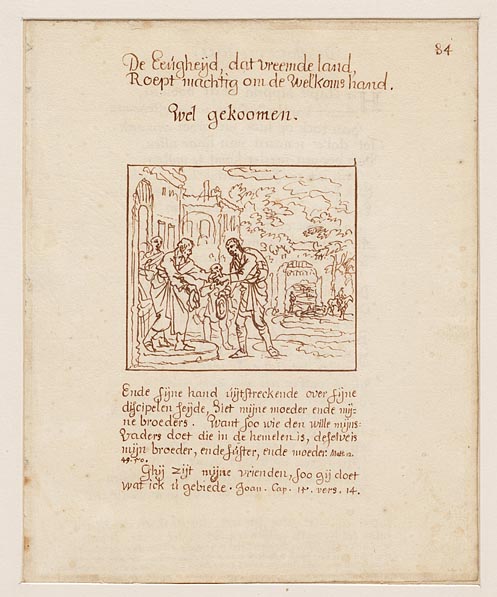 84
De Eeugheijd, dat vreemde land,
Roept machtig om de Welkoms hand.
Wel gekoomen.
Ende sijne hand uijtstreckende over sijne
discipelen seijde, Siet mijne moeder ende mij-
ne broeders. Want soo wie den wille mijns
Vaders doet die in de hemelen is, deselve is
mijn broeder, ende suster, ende moeder. Matt. 12.
49. 50.
Ghij zijt mijne vrienden, soo gij doet
wat ick u gebiede. Joan. Cap. 15. vers. 14.